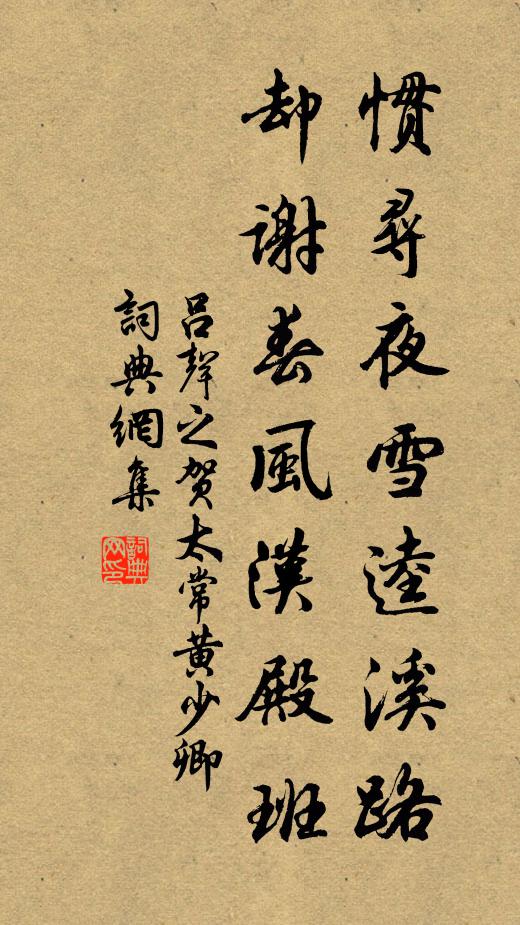 慣尋夜雪逵溪路
却謝春風漢殿班
呂聲之賀太常黃少卿
詞典網集
詞典
网印